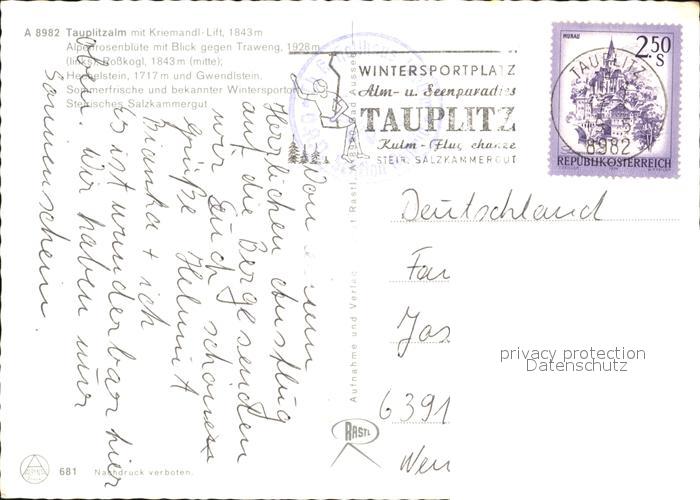 A 8982 Tauplitzalm mit Kriemandl-Lift, 1843 m
Alpenrosenblüte mit Blick gegen Traweng, 1928 m
(links) Roßkogl, 1843 m (mitte);
Hechelstein, 1717 m und Gwendlstein.
Sommerfrische und bekannter Wintersportort
Steirisches Salzkammergut
WINTERSPORTPLATZ
Alm- u. Seenparadies
TAUPLITZ
Kulm - Flugschanze
STEIR. SALZKAMMERGUT
MURAU
2.50
S
REPUBLIK ÖSTERREICH
TAUPLITZ
8982
Von
herzlichen Ausflug
auf die Berge senden
wir Euch schöne
Grüße Helmut
Bianka + ich
Es ist wunderbar hier
oben. Wir haben nur
Sonnenschein.
Aufnahme und Verlag
t Rastl, A-8990 Bad Aussee
Deutschland
Fam
Jos
6391
Wen
privacy protection
Datenschutz
RASTL
681 Nachdruck verboten.